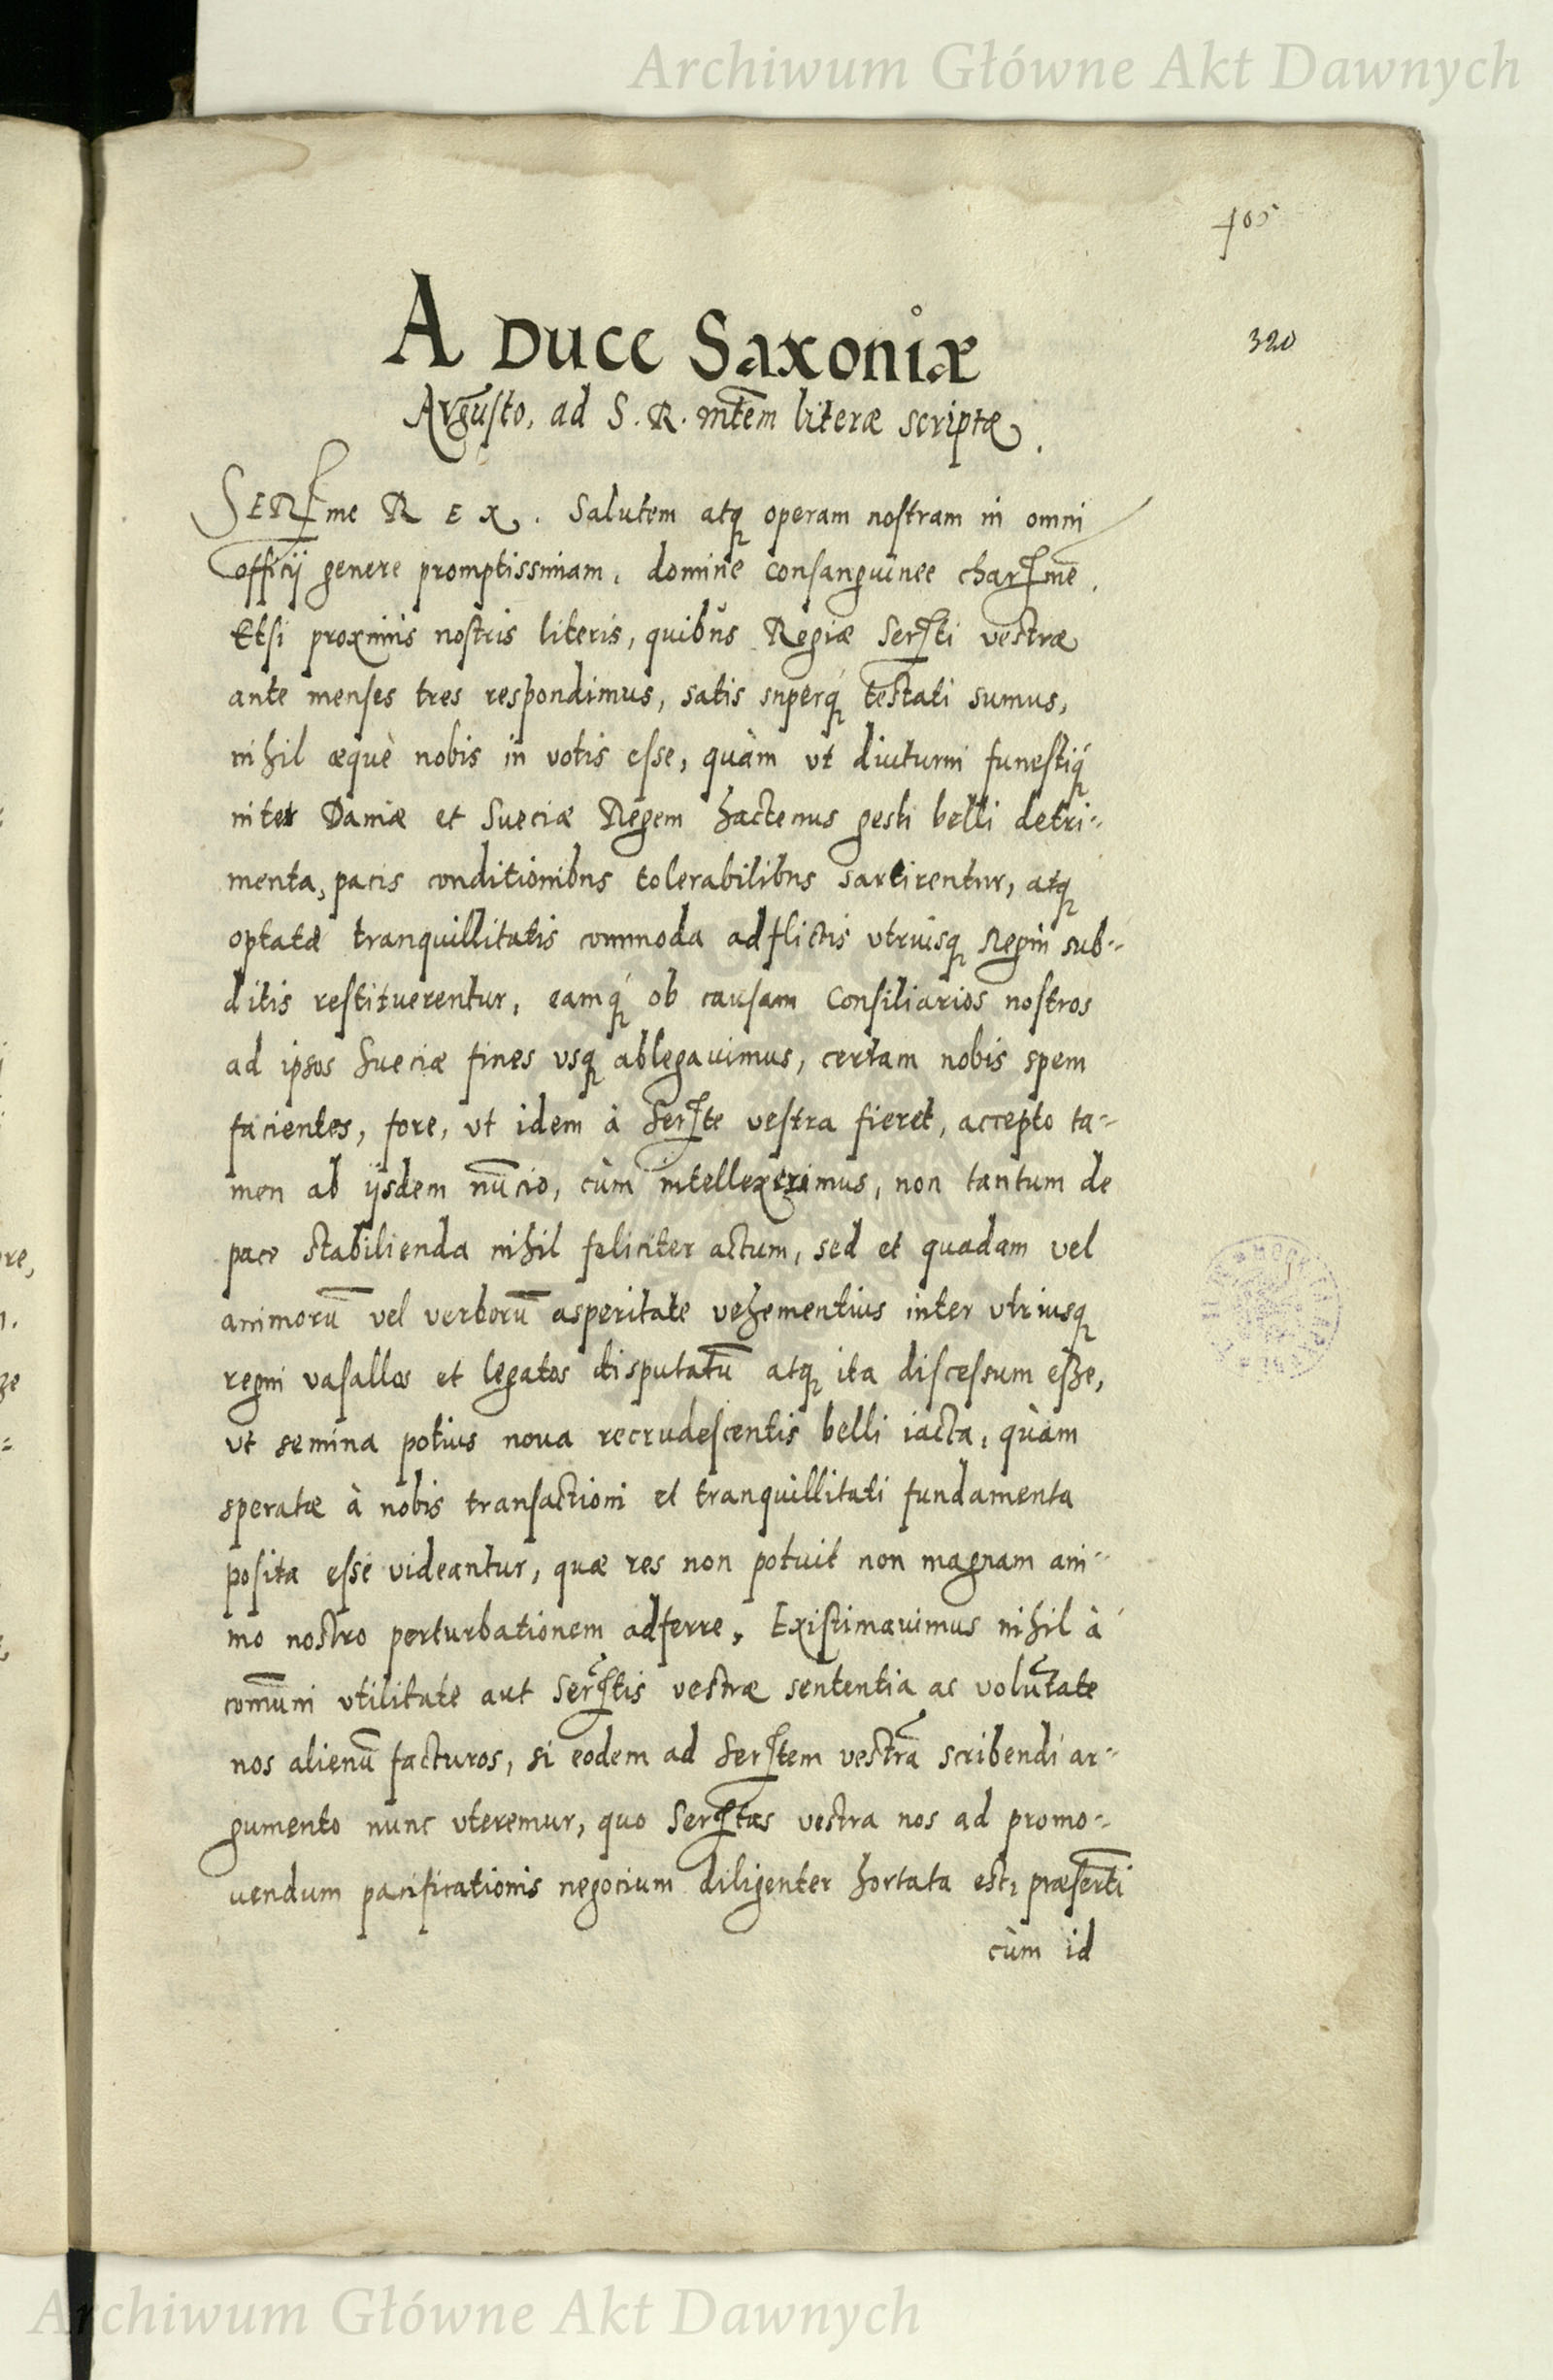 Archiwum Główne Akt Dawnych
405
320
A Duce Saxoniæ
Augusto, ad S. R. mtem literæ scriptæ.
SERme REX. Salutem atq operam nostram in omni
officij genere promptissimam, domine consanguinee charme.
Etsi proximis nostris literis, quibus Regiæ Serti vestræ
ante menses tres respondimus, satis superq́ testati sumus,
nihil æquè nobis in votis esse, quàm vt diuturni funestiq́
inter Daniæ et Sueciæ Regem hactenus gesti belli detri-
menta, pacis conditionibus tolerabilibus sartirentur, atq
optatæ tranquillitatis commoda adflictis vtriusq Regni sub-
ditis restituerentur, eamq́ ob causam Consiliarios nostros
ad ipsos Sueciæ fines vsq ablegauimus, certam nobis spem
facientes, fore, vt idem à Serte vestra fieret, accepto ta-
men ab ijsdem nũcio, cùm intellexerimus, non tantum de
pace stabilienda nihil feliciter actum, sed et quadam vel
animorũ vel verborũ asperitate vehementius inter vtriusq
regni vasallos et legatos disputatũ atq ita discessum esse,
vt semina potius noua recrudescentis belli iacta, quàm
speratæ à nobis transactioni et tranquillitati fundamenta
posita esse videantur, quæ res non potuit non magnam ani-
mo nostro perturbationem adferre, Existimauimus nihil à
comũni vtilitate aut Sertis vestræ sententia ac volũtate
nos alienũ facturos, si eodem ad Sertem vestrã scribendi ar-
gumento nunc vteremur, quo Sertas vestra nos ad promo-
uendum pacificationis negocium diligenter hortata est, præsertĩ
cùm id
Archiwum Główne Akt Dawnych